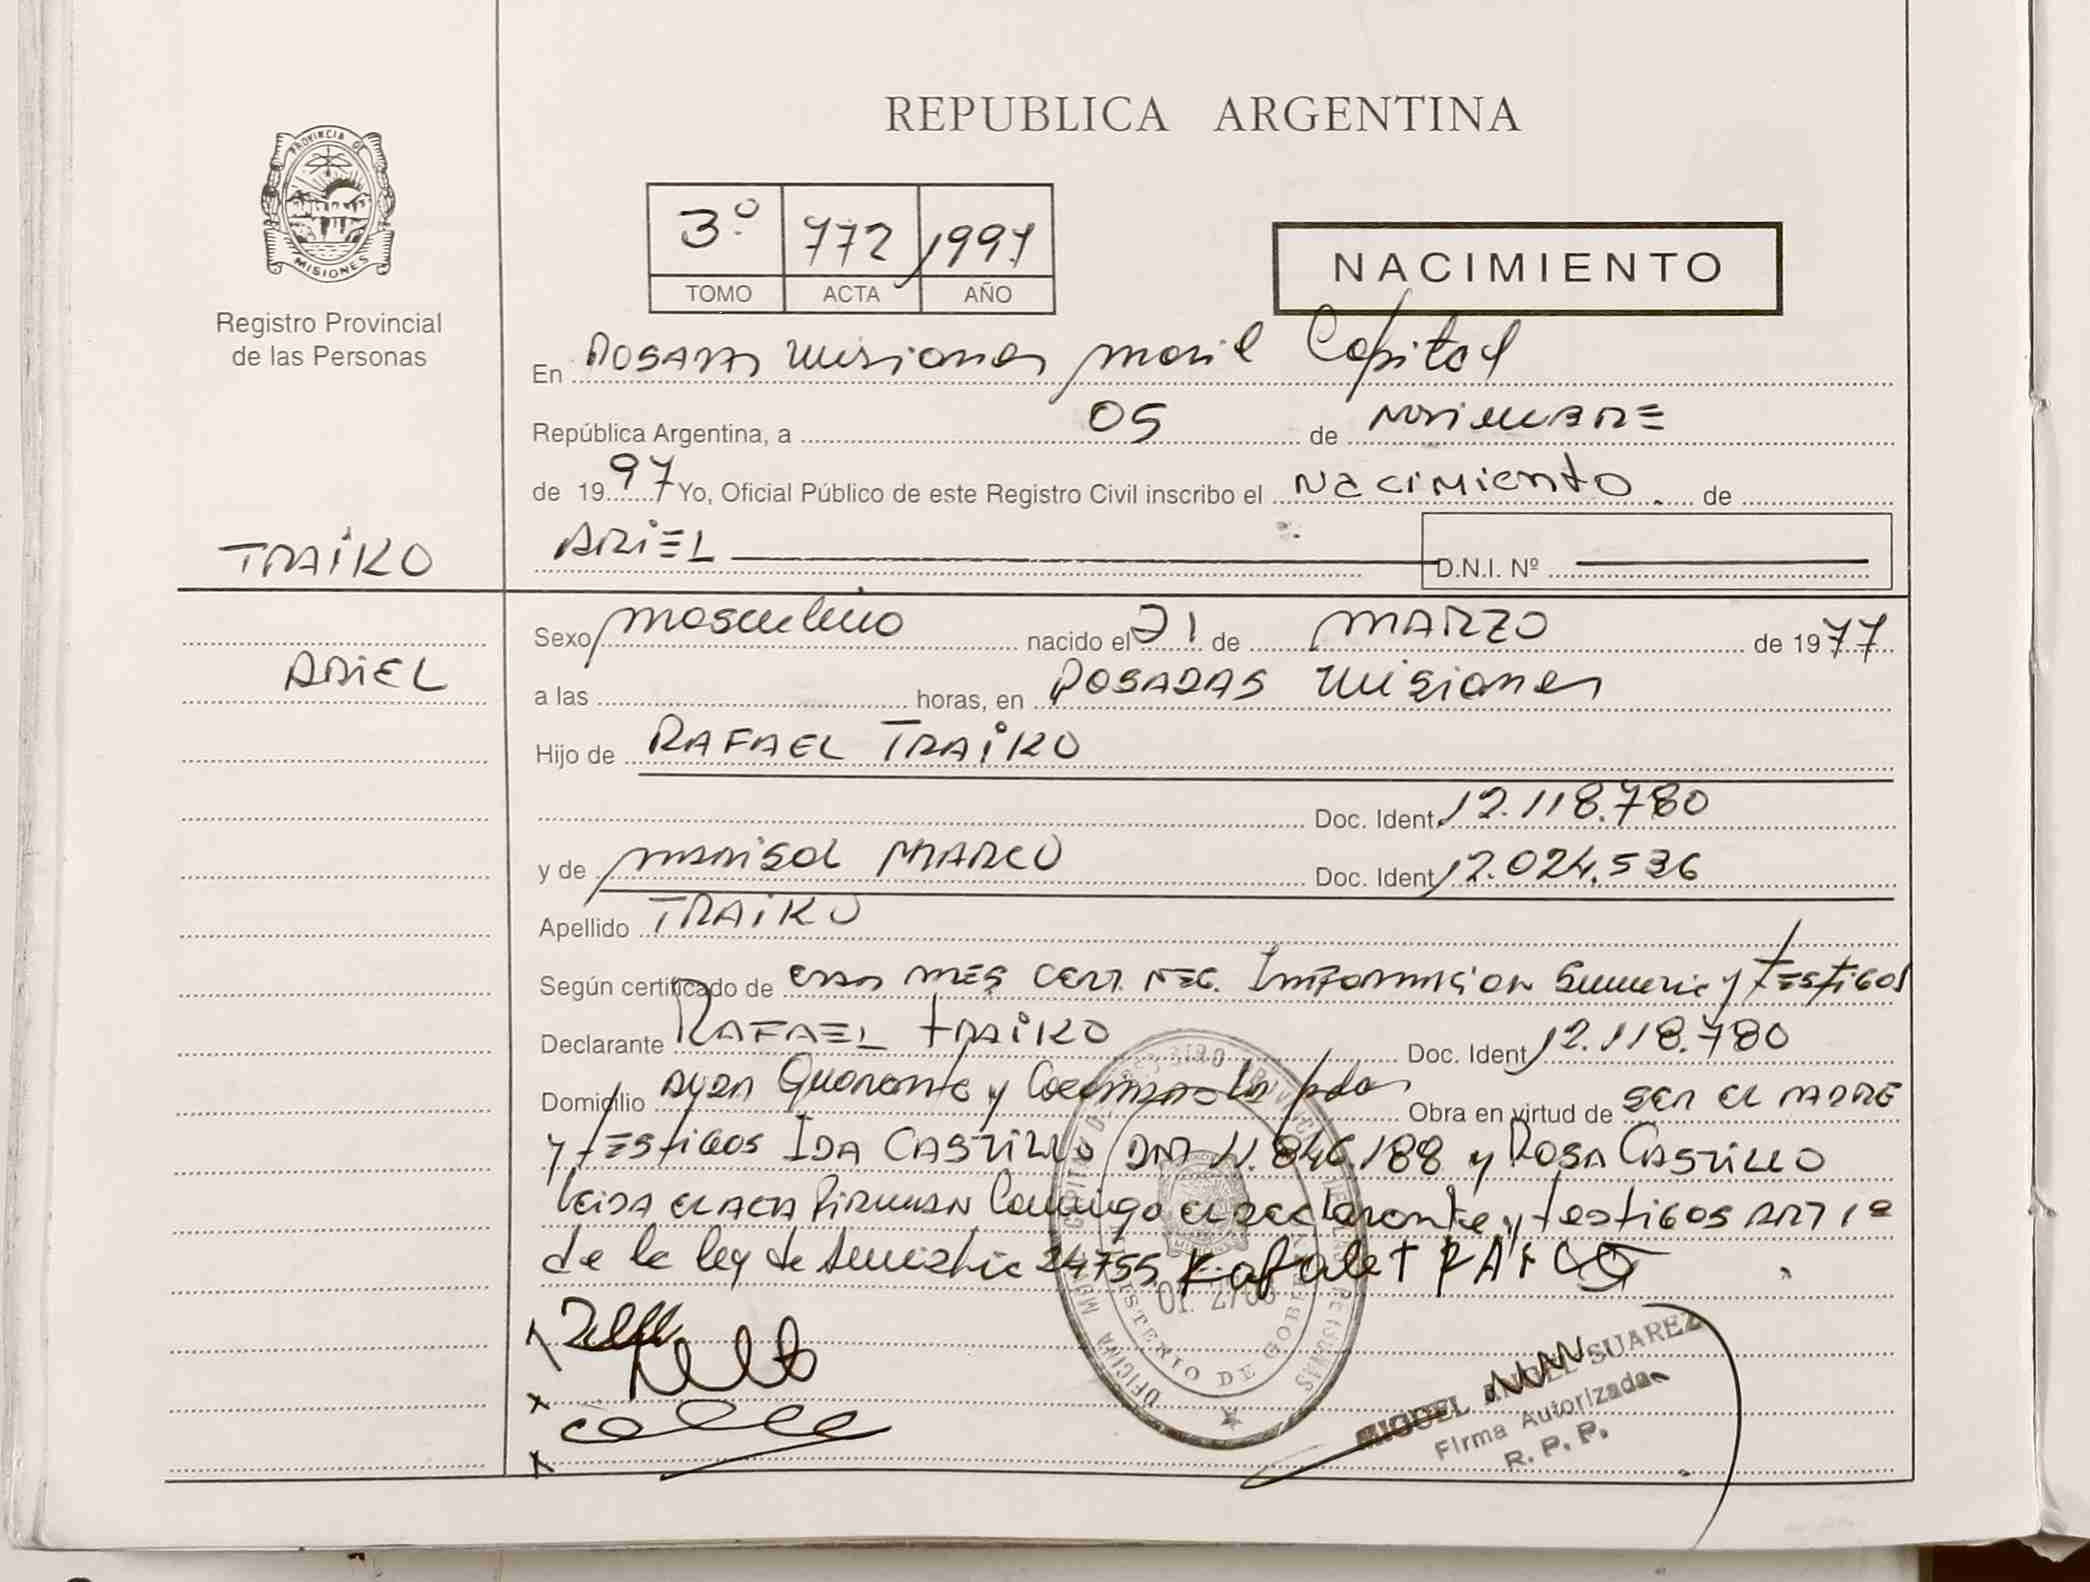 REPUBLICA ARGENTINA
PROVINCIA DE
MISIONES
Registro Provincial
de las Personas
3º 772 1997
TOMO ACTA AÑO
NACIMIENTO
En POSADAS Misiones movil Capital
República Argentina, a 05 de NoviemBRE
de 1997 Yo, Oficial Público de este Registro Civil inscribo el Nacimiento. de
TRAiKO
ARiEL D.N.I. Nº
Sexo masculino nacido el 21 de MARZO de 1977
ARiEL
a las horas, en POSADAS Misiones
Hijo de RAFAEL TRAiKO
Doc. Ident. 12.118.780
y de MARiSOL MARCO Doc. Ident. 12.024.536
Apellido TRAiKO
Según certificado de CERT. NEG. InFORMACiON Sumaria y TESTiGOS
Declarante RAFAEL TRAiKO Doc. Ident. 12.118.780
Domicilio Quaranta y pdas Obra en virtud de SER EL PADRE
y TESTiGOS IDA CASTiLLO DNI 11.846.188 y ROSA CASTiLLO
LeiDA EL ACTA FiRMAN Conmigo el declarante y testiGOS ART 1º
de la ley de Amnistia 24755 Rafael TRAiCO
OFICINA MOVIL CAPITAL DEL REGISTRO PROVINCIAL DE LAS PERSONAS
MINISTERIO DE GOBIERNO
MIGUEL ANGEL SUAREZ
Firma Autorizada
R. P. P.